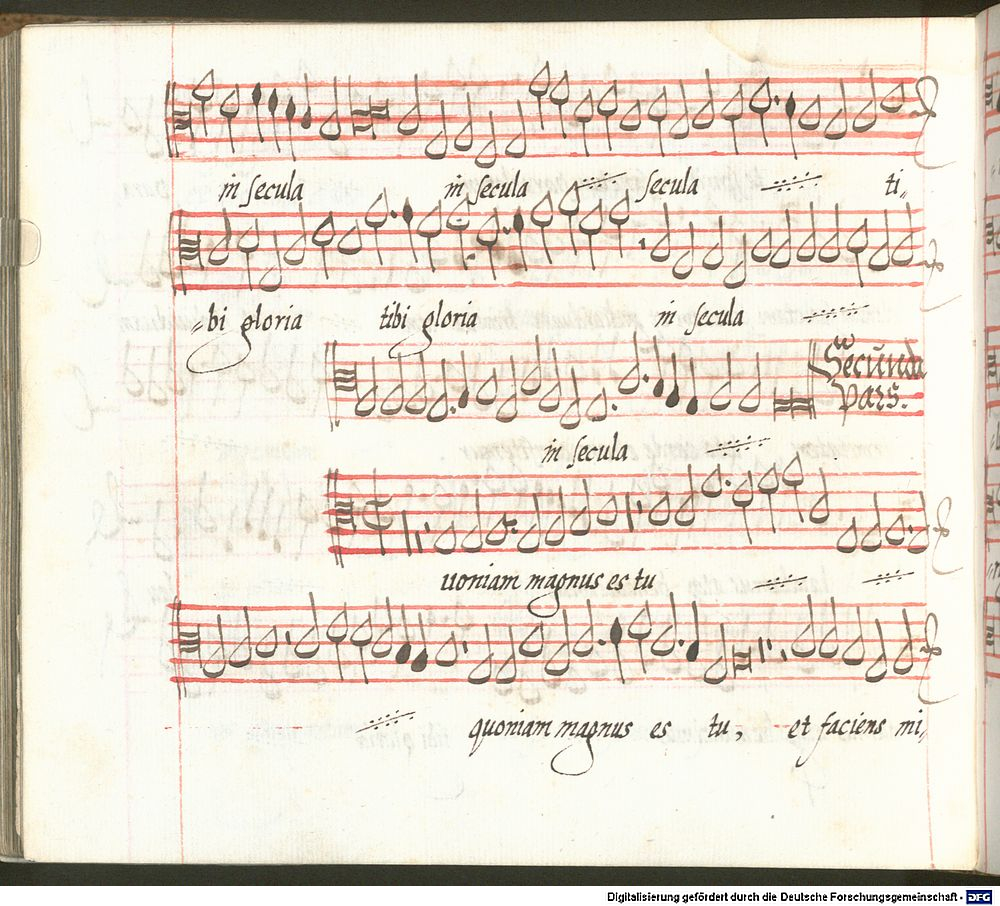 in secula in secula secula ti-
-bi gloria tibi gloria in secula
Secunda
pars.
in secula
uoniam magnus es tu
quoniam magnus es tu, et faciens mi-
Digitalisierung gefördert durch die Deutsche Forschungsgemeinschaft - DFG